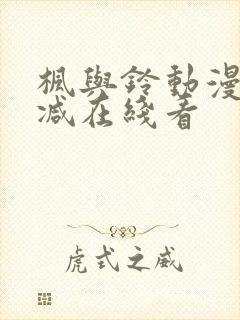 楓與鈴動漫
减在綫看
虎式之威